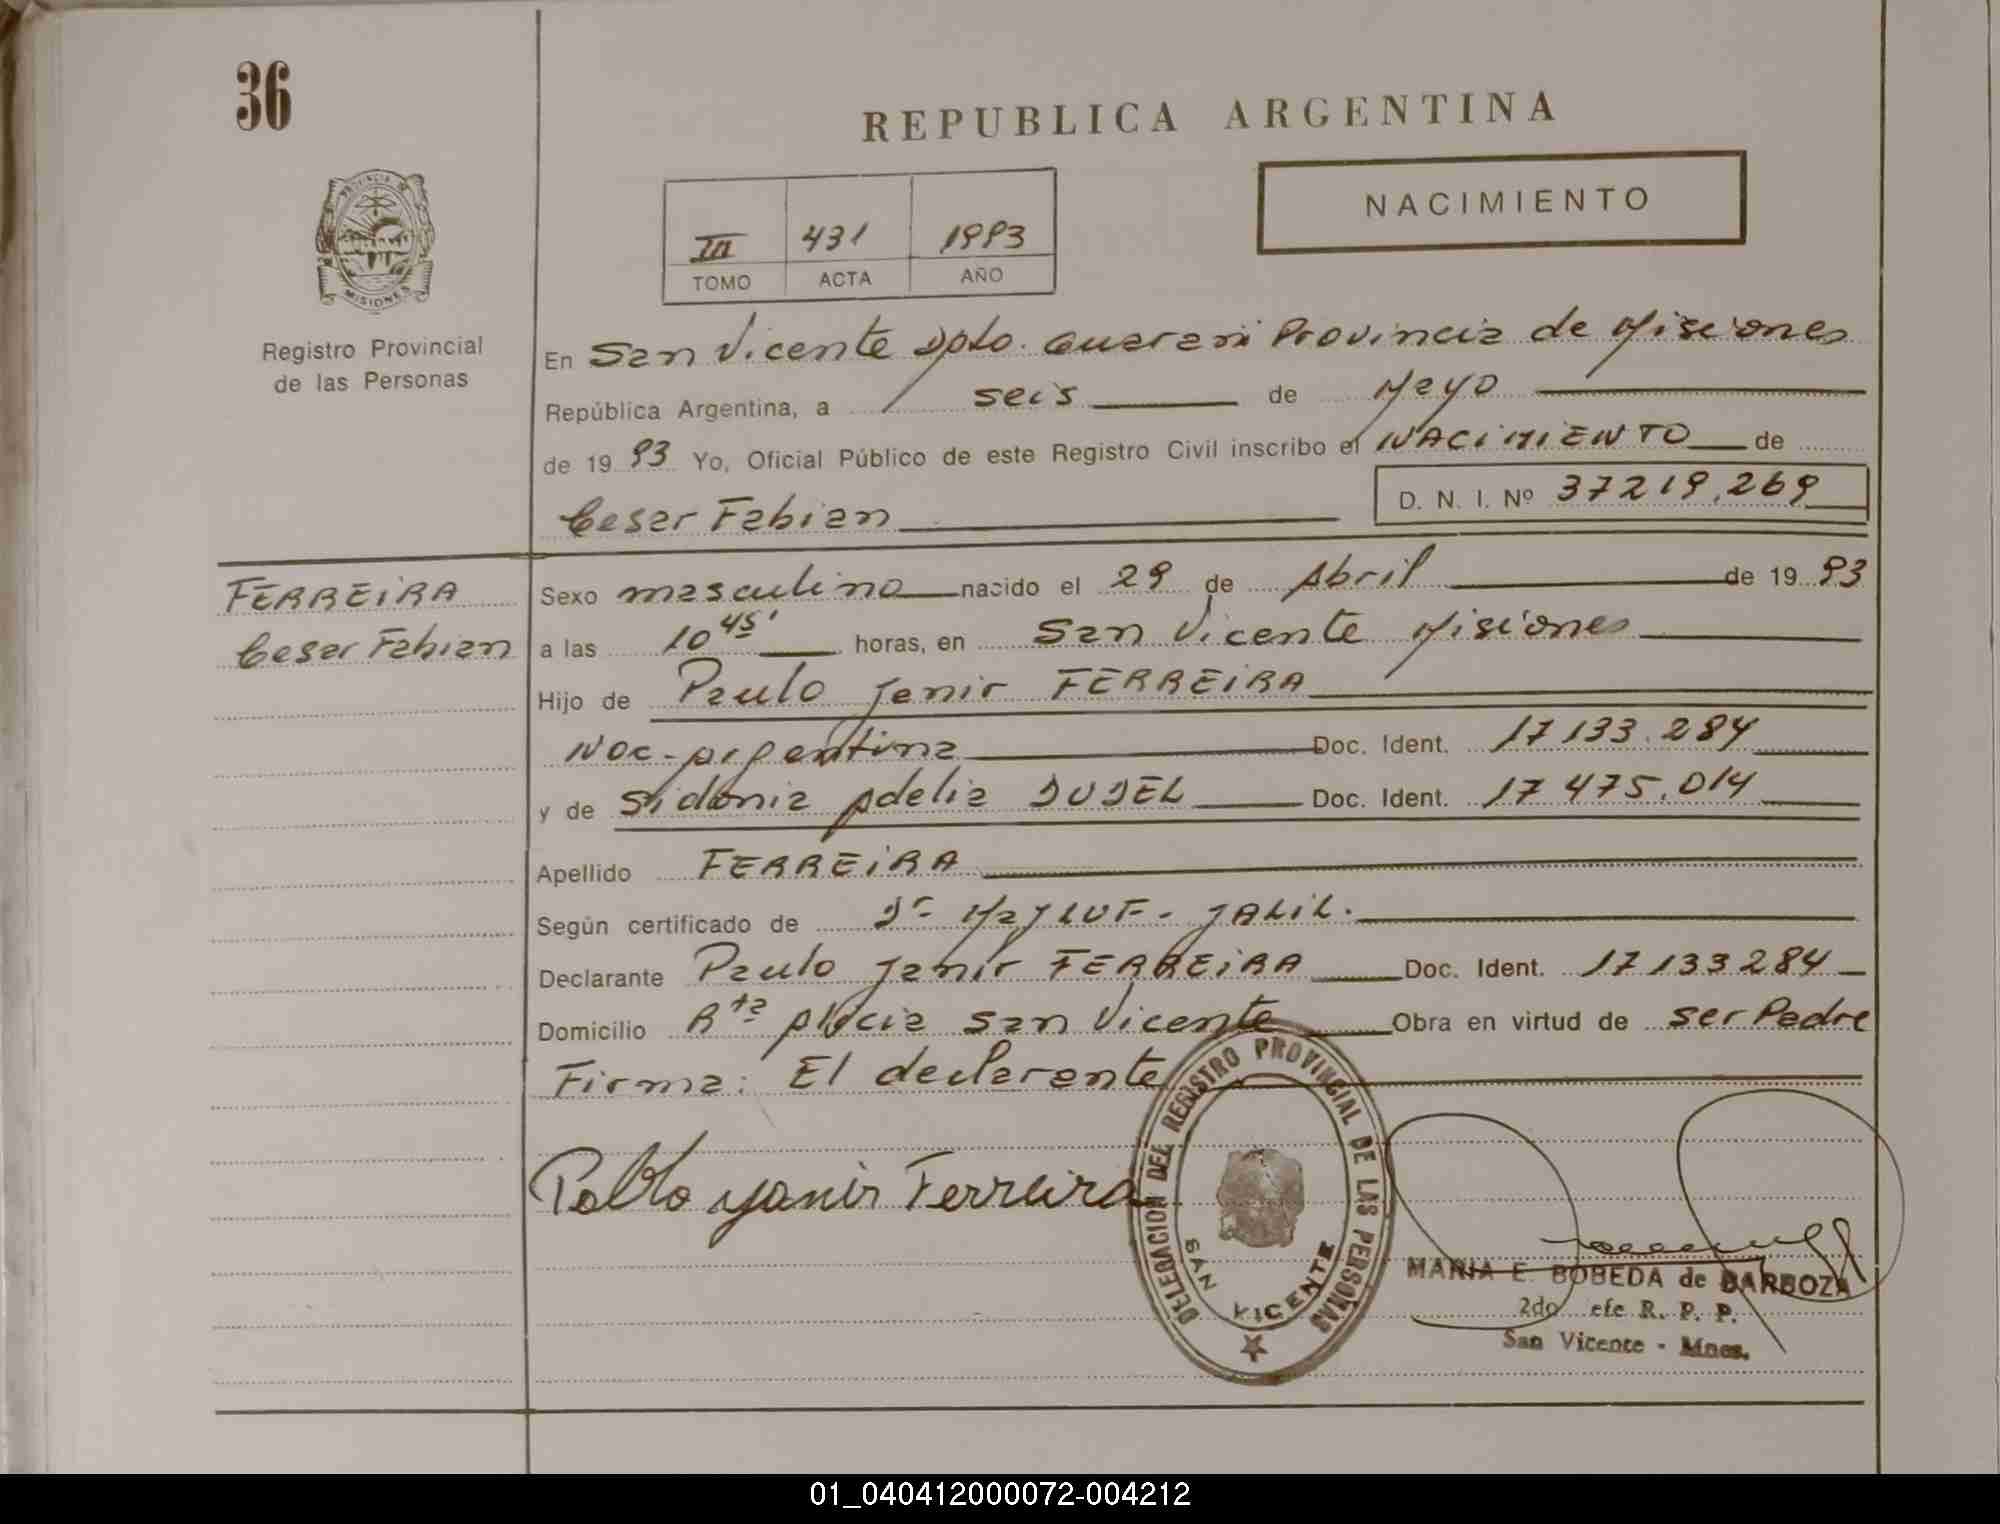 36
REPUBLICA ARGENTINA
NACIMIENTO
III 431 1993
TOMO ACTA AÑO
PROVINCIA DE
MISIONES
Registro Provincial
de las Personas
En San Vicente Dpto. Guarani Provincia de Misiones
República Argentina, a seis de Mayo
de 1993 Yo, Oficial Público de este Registro Civil inscribo el NACIMIENTO de
Cesar Fabian D. N. I. Nº 37219.269
FERREIRA
Cesar Fabian
Sexo masculino nacido el 29 de Abril de 1993
a las 10 45' horas, en San Vicente Misiones
Hijo de Paulo Janir FERREIRA
Nac-Argentina Doc. Ident. 17133.284
y de Sidonia Adelia DUDEL Doc. Ident. 17475.014
Apellido FERREIRA
Según certificado de Dr- MAJLUF- JALIL.
Declarante Paulo Janir FERREIRA Doc. Ident. 17133284
Domicilio San Vicente Obra en virtud de ser Padre
Firma: El declarante
Pablo Yanir Ferreira
DELEGACION DEL REGISTRO PROVINCIAL DE LAS PERSONAS
SAN VICENTE
MARIA E. BOBEDA de BARBOZA
2do efe R. P. P.
San Vicente - Mnes.
01_040412000072-004212